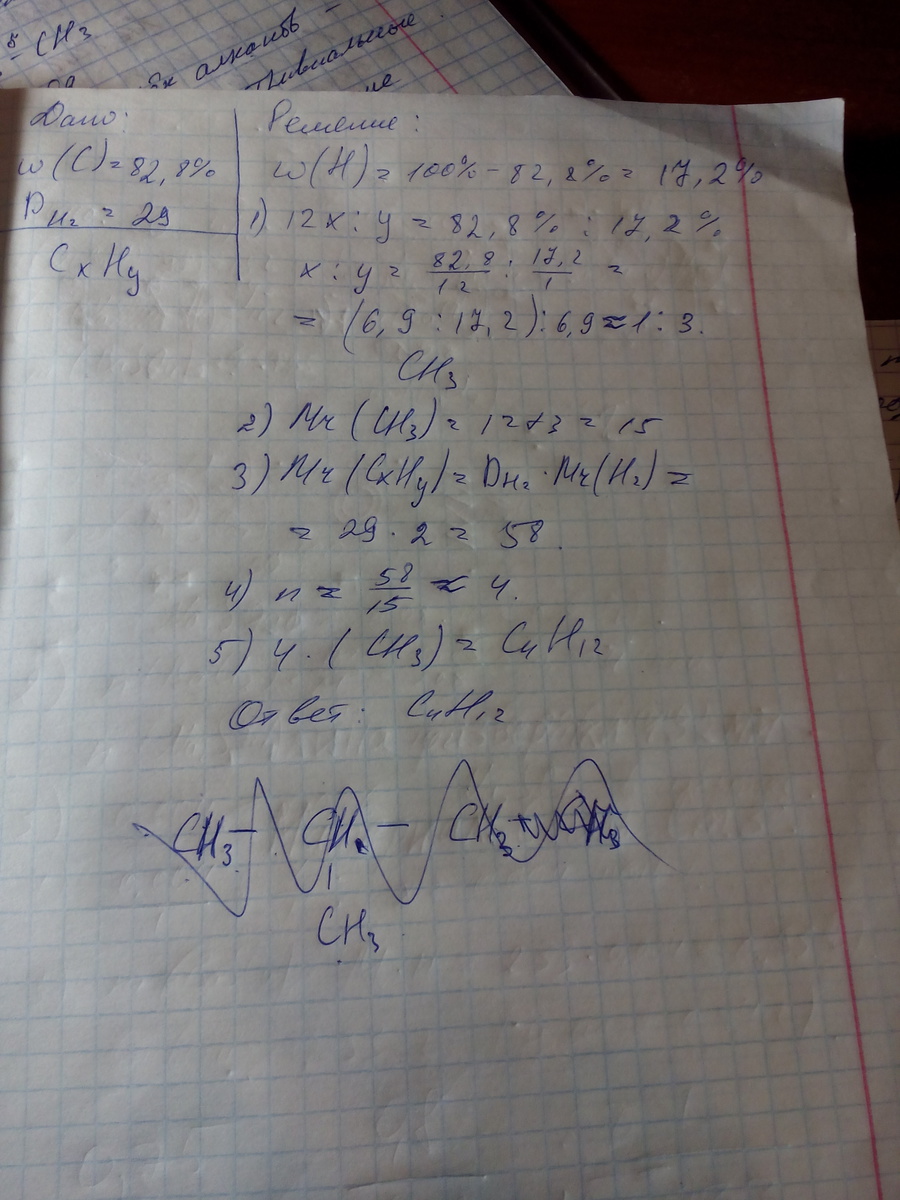 5 CH3
алканов -
Тривиальные
Дано:
w(C)=82,8%
DH2 = 29
CxHy
Решение:
w(H) = 100% - 82,8% = 17,2%
1) 12x : y = 82,8% : 17,2%
x : y = 82,8/12 : 17,2/1 =
= (6,9 : 17,2) : 6,9 ≈ 1 : 3.
CH3
2) Mr (CH3) = 12+3 = 15
3) Mr (CxHy) = DH2 · Mr(H2) =
= 29 · 2 = 58.
4) n = 58/15 ≈ 4.
5) 4 · (CH3) = C4H12
Ответ: C4H12
CH3 - CH - CH3
CH3